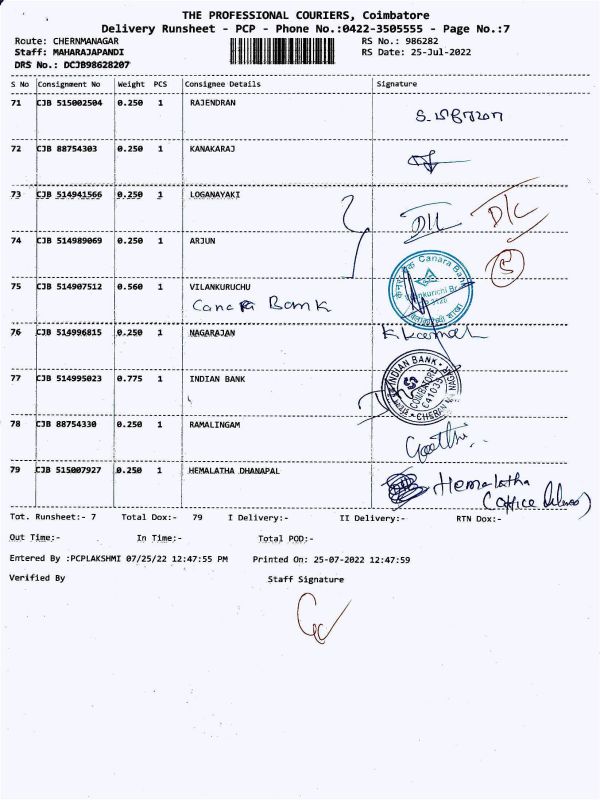 THE PROFESSIONAL COURIERS, Coimbatore
Delivery Runsheet - PCP - Phone No.:0422-3505555 - Page No.:7
Route: CHERNMANAGAR RS No.: 986282
Staff: MAHARAJAPANDI RS Date: 25-Jul-2022
DRS No.: DCJB98628207
S No Consignment No Weight PCS Consignee Details Signature
71 CJB 515002504 0.250 1 RAJENDRAN
72 CJB 88754303 0.250 1 KANAKARAJ
73 CJB 514941566 0.250 1 LOGANAYAKI
D/L D/C
74 CJB 514989069 0.250 1 ARJUN
Canara Bank
75 CJB 514907512 0.560 1 VILANKURUCHU
Canara Bank
76 CJB 514996815 0.250 1 NAGARAJAN
K Kamal
INDIAN BANK
77 CJB 514995023 0.775 1 INDIAN BANK
COIMBATORE
78 CJB 88754330 0.250 1 RAMALINGAM
79 CJB 515007927 0.250 1 HEMALATHA DHANAPAL
Hemalatha
(office
Tot. Runsheet:- 7 Total Dox:- 79 I Delivery:- II Delivery:- RTN Dox:-
Out Time:- In Time:- Total POD:-
Entered By :PCPLAKSHMI 07/25/22 12:47:55 PM Printed On: 25-07-2022 12:47:59
Verified By Staff Signature